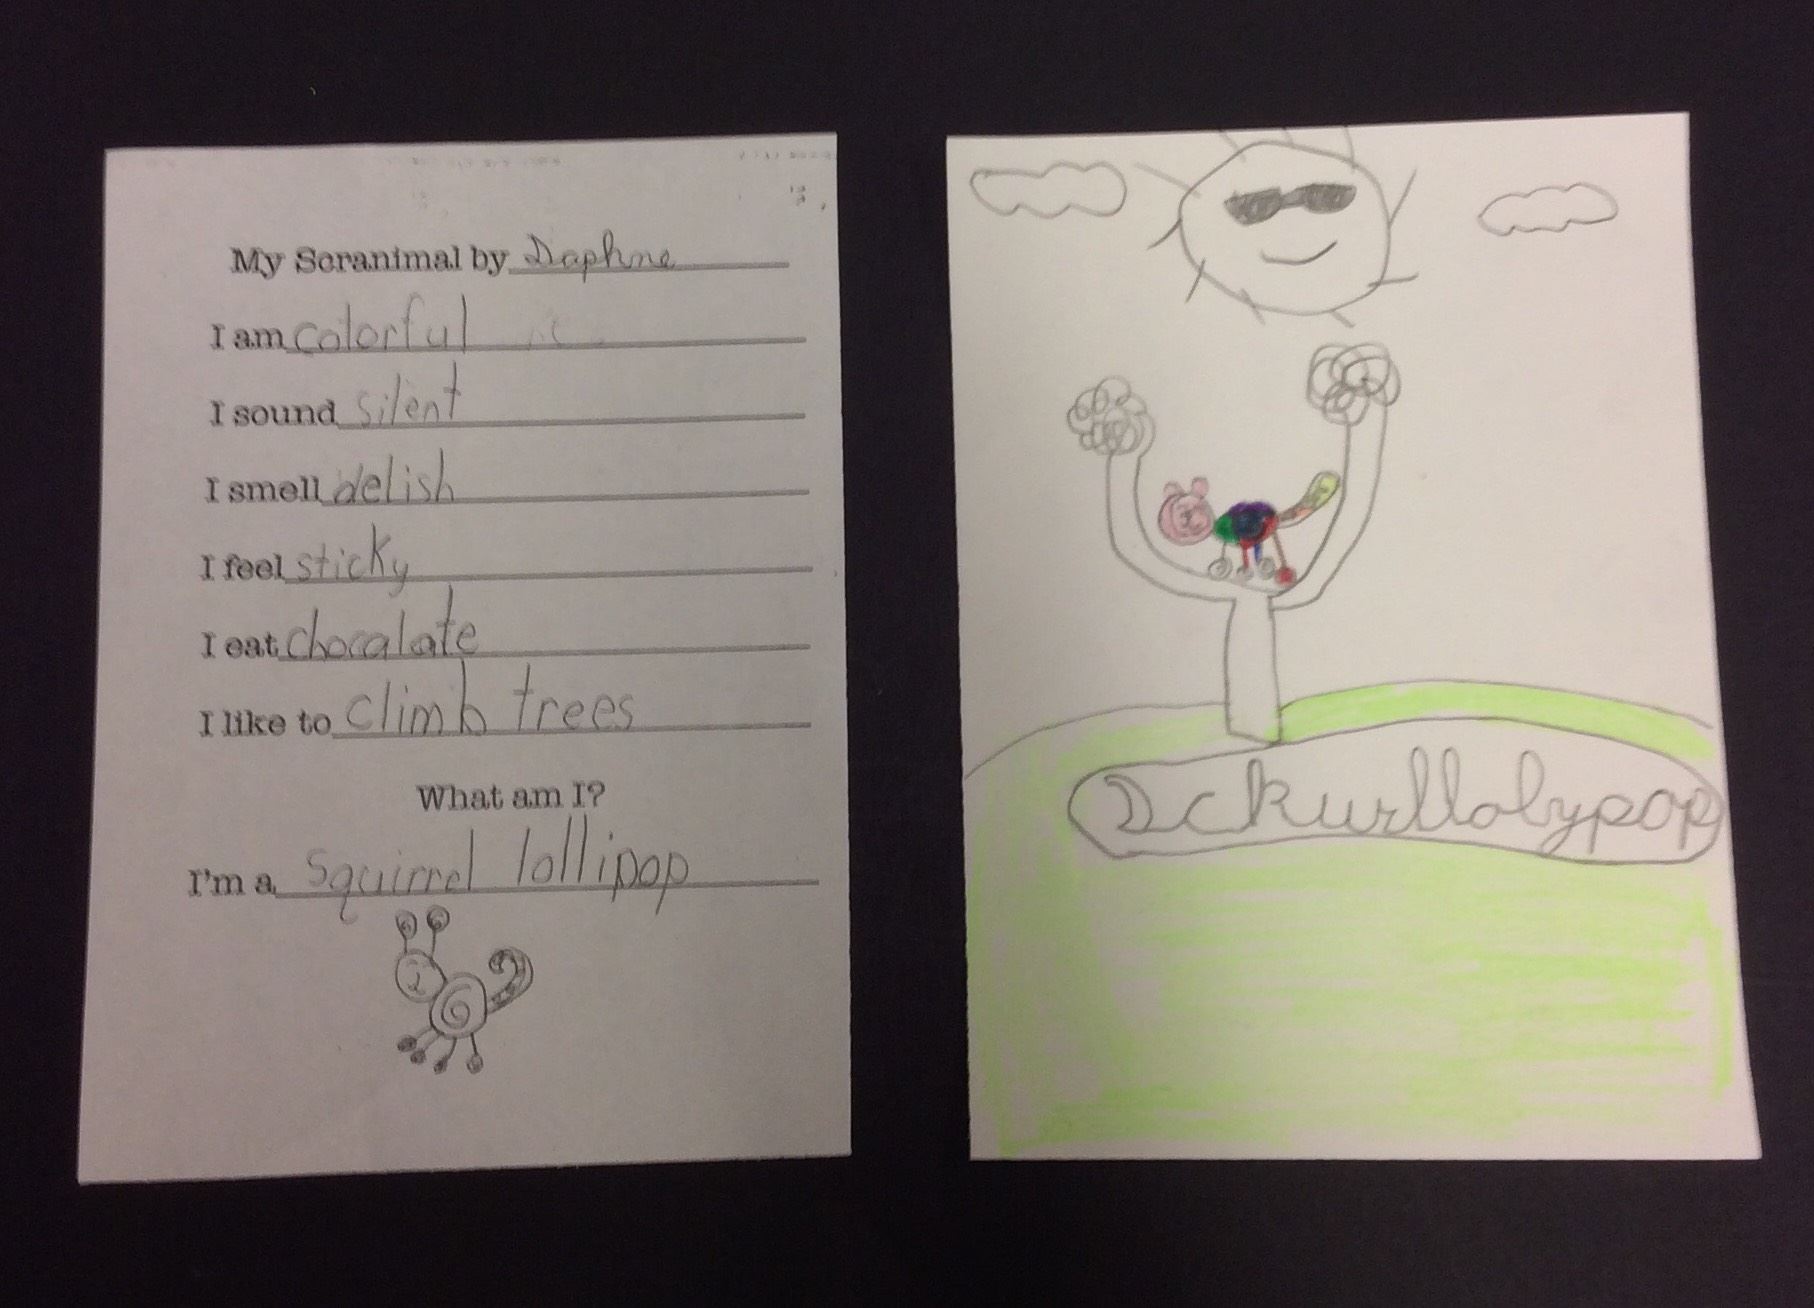 My Scranimal by Daphne
I am colorful
I sound silent
I smell delish
I feel sticky
I eat chocalate
I like to climb trees
What am I?
I'm a squirrel lollipop
Dckwrllolypop